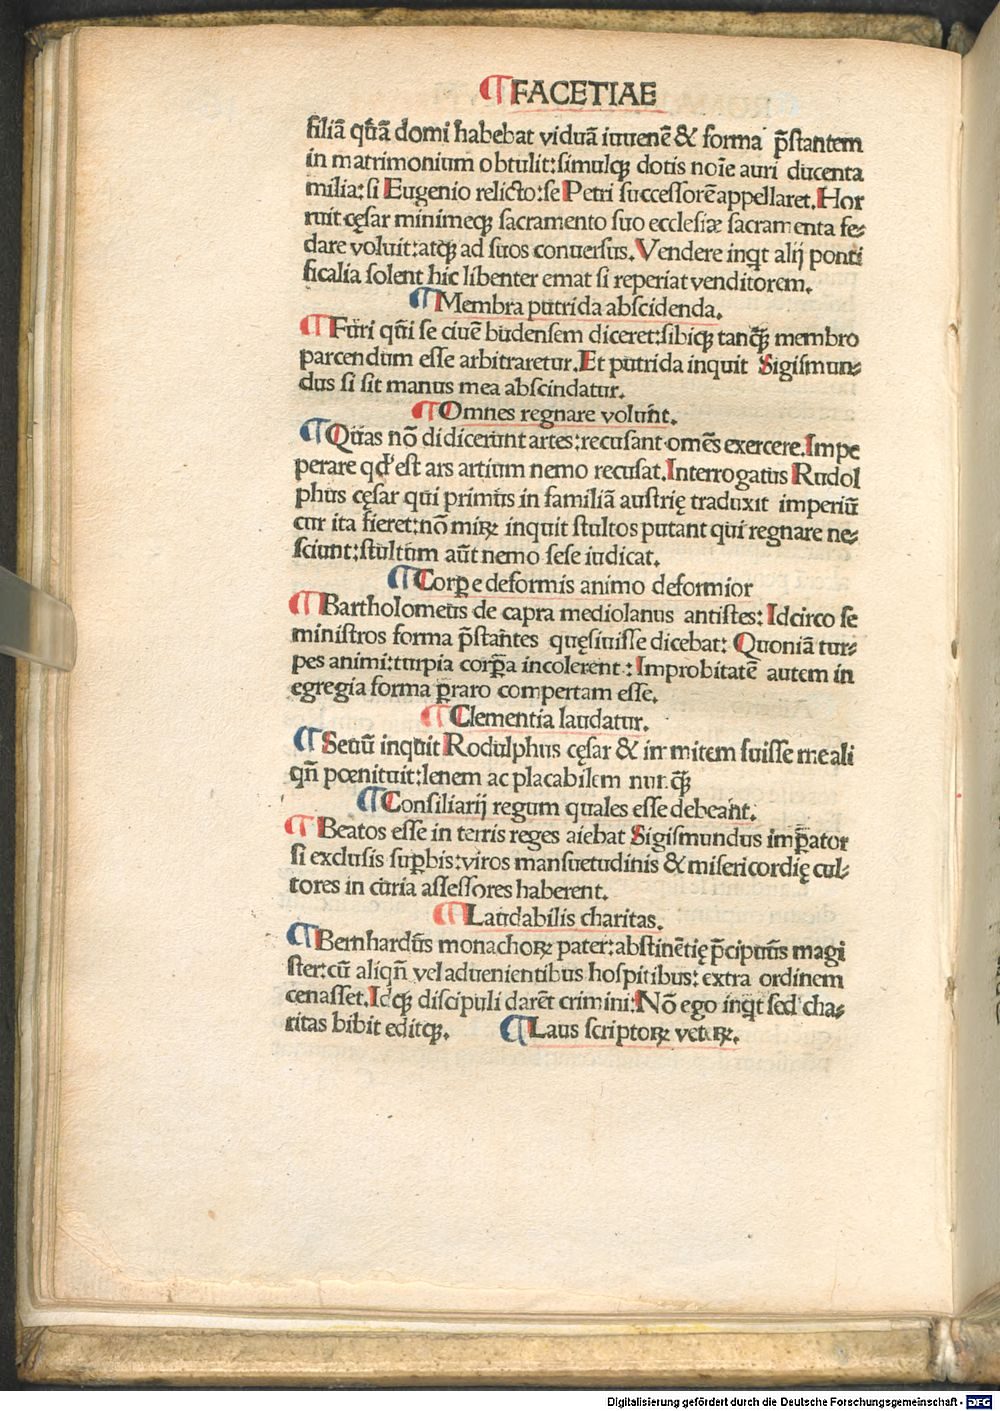 ¶FACETIAE
filiā quā domi habebat viduā iuuenē & forma p̄stantem
in matrimonium obtulit:simulqꝫ dotis noīe auri ducenta
milia:si Eugenio relicto:se Petri successorē appellaret.Hor
ruit cęsar minimeqꝫ sacramento suo ecclesiæ sacramenta fe⸗
dare voluit:atqꝫ ad suos conuersus.Vendere inqt alij ponti
ficalia solent hic libenter emat si reperiat venditorem.
¶Membra putrida abscidenda.
¶Furi qui se ciuē budensem diceret:sibiqꝫ tanqꝫ membro
parcendum esse arbitraretur.Et putrida inquit Sigismun⸗
dus si sit manus mea abscindatur.
¶Omnes regnare volunt.
¶Quas nō didicerunt artes:recusant omēs exercere.Impe
perare qd' est ars artium nemo recusat.Interrogatus Rudol
phus cęsar qui primus in familiā austrię traduxit imperiū
cur ita fieret:nō miꝝ inquit stultos putant qui regnare ne⸗
sciunt:stultum aūt nemo sese iudicat.
¶Corꝑe deformis animo deformior
¶Bartholomeus de capra mediolanus antistes:Idcirco se
ministros forma p̄stantes quęsiuisse dicebat:Quoniā tur⸗
pes animi:turpia corꝑa incolerent:Improbitatē autem in
egregia forma ꝑraro compertam esse.
¶Clementia laudatur.
¶Seuū inquit Rodulphus cęsar & immitem fuisse me ali
qn̄ pœnituit:lenem ac placabilem nunqꝫ
¶Consiliarij regum quales esse debeant.
¶Beatos esse in terris reges aiebat Sigismundus imꝑator
si exclusis suꝑbis:viros mansuetudinis & misericordię cul⸗
tores in curia assessores haberent.
¶Laudabilis charitas.
¶Bernhardus monachoꝝ pater:abstinētię p̄cipuus magi
ster:cū aliqn̄ vel aduenientibus hospitibus:extra ordinem
cenasset.Idqꝫ discipuli darēt crimini:Nō ego inqt sed cha⸗
ritas bibit editqꝫ. ¶Laus scriptoꝝ veteꝝ.
Digitalisierung gefördert durch die Deutsche Forschungsgemeinschaft - DFG